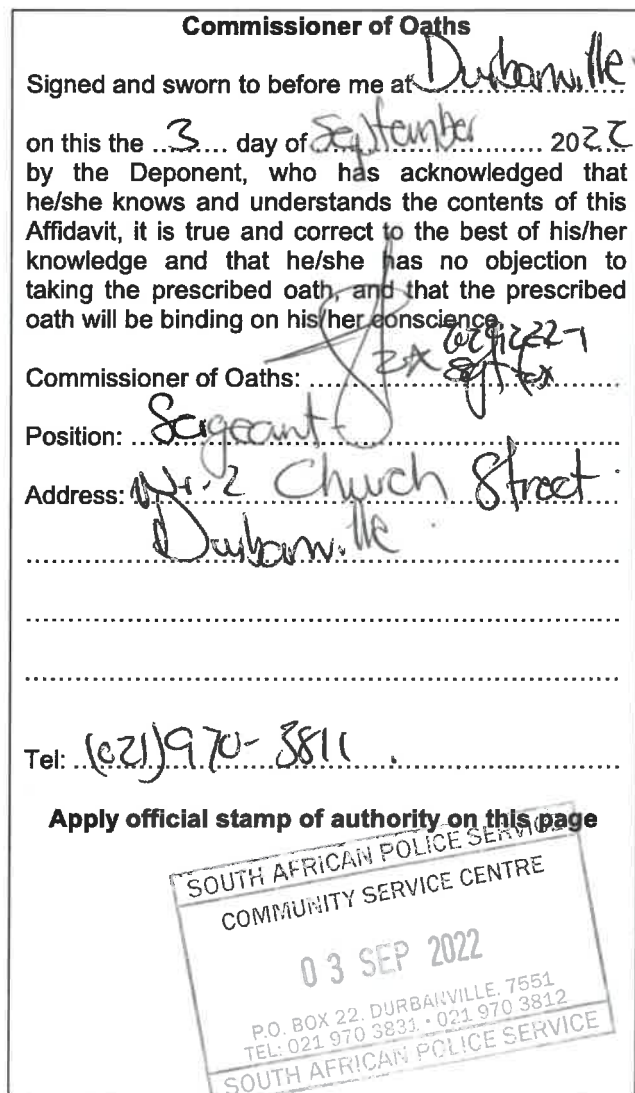 Commissioner of Oaths
Signed and sworn to before me at Durbanville
on this the 3 day of September 2022
by the Deponent, who has acknowledged that
he/she knows and understands the contents of this
Affidavit, it is true and correct to the best of his/her
knowledge and that he/she has no objection to
taking the prescribed oath, and that the prescribed
oath will be binding on his/her conscience
Commissioner of Oaths:
Position: Sergeant
Address: Nr. 2 Church Street
Durbanville
Tel: (021) 970-3811
Apply official stamp of authority on this page
SOUTH AFRICAN POLICE SERVICE
COMMUNITY SERVICE CENTRE
03 SEP 2022
P.O. BOX 22, DURBANVILLE, 7551
TEL: 021 970 3831 • 021 970 3812
SOUTH AFRICAN POLICE SERVICE